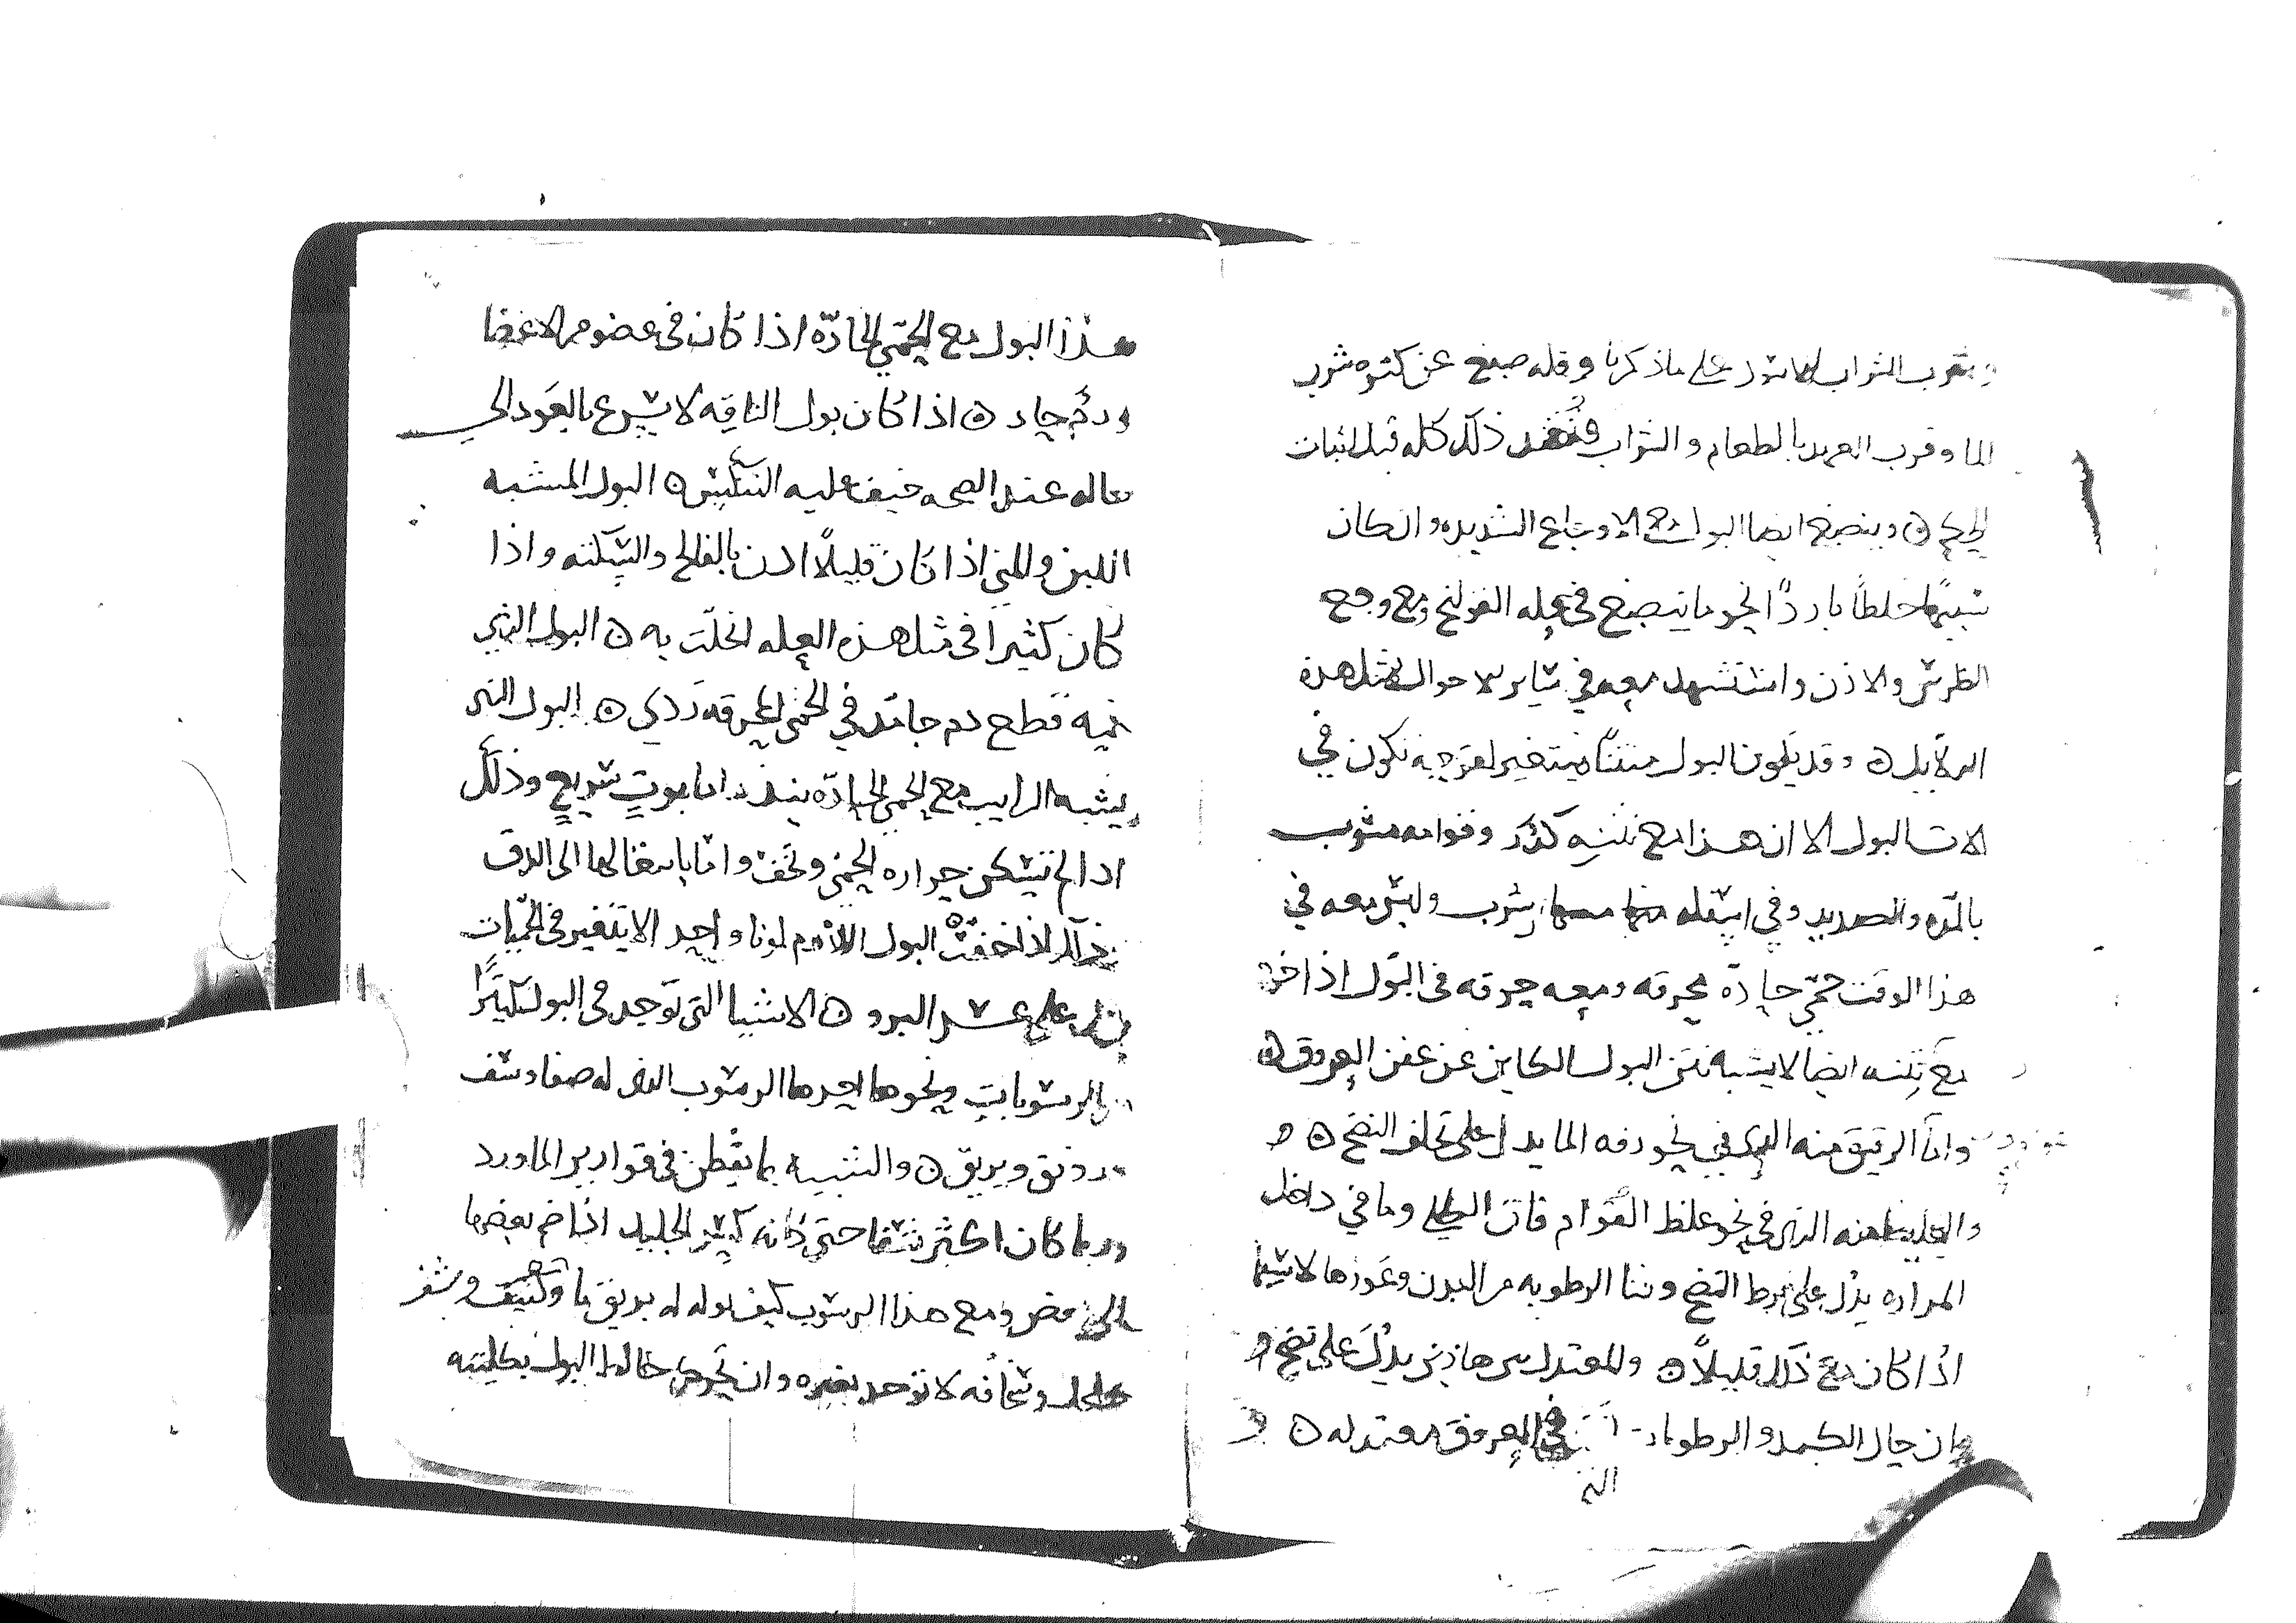 وبقرب الشراب الاسود على ما ذكرنا وقله صبغ عن كثره شرب
الما وقرب العهد بالطعام والشراب فتفقد ذلك كله قبل اثبات
الحكم ن وينصبغ ايضا البول مع الاوجاع الشديده وان كان
سببها خلطاً بارداً نحو ما ينصبغ في عله القولنج ومع وجع
الظرس والاذن واستشهد معه في ساير الاحوال مثل هذه
الدلايل ن وقد يكون البول منتناً متغير لقرحه تكون في
الات البول الا ان هذا مع نتنه كدر وقوامه مشوب
بالمده والصديد وفي اسفله رسوب وليس معه في
هذا الوقت حمّى حادّه محرقه ومعه حرقه في البول اذا خرج
مع نتنه ايضا لا يشبه نتن البول الكاين عن عفن العروق ن
وامّا الرقيق منه الذي في نحو رقه الما يدل على تخلف النضج ن
والغليظ منه الذي في نحو غلظ القوام فان الكلى وما في داخل
المراره يدل على فرط النضج وفنا الرطوبه من البدن وغورها لاسيما
اذا كان مع ذلك قليلاً ن والمعتدل بين هاذين يدل على نضج
وان حال الكبد والرطوبات في العروق معتدله ن
هذا البول مع الحمّى الحادّه اذا كان في عضو من الاعضا
ورم حاد ن اذا كان بول الناقه لا يسرع بالعود الى
حاله عند الصحه خيف عليه النكس ن البول المشبه
اللبن والمني اذا كان قليلاً اذن بالفالج والسكته واذا
كان كثيراً في مثل هذه العله انحلّت به ن البول الذي
فيه قطع دم جامد في الحمى المحرقه ردي ن البول الذي
يشبه الرايب مع الحمى الحادّه ينذر اما بموتٍ سريعٍ وذلك
اذا لم تسكن حراره الحمى وتخف واما بانتقالها الى الدق
وذلك اذا خفّت ن البول اللازم لونا واحد الا يتغير في الحمّيات
يدل على عسر البرو ن الاشيا التي توجد في البول كثيراً
من الرسوبات ونحوها احدها الرسوب الذي له صفا وشف
ورونق وبريق ن والشبيه بما يقطن في قوارير الماورد
وربما كان اكثر شفا حتى كانه كسر الجليد اذا ضم بعضها
الى بعض ومع هذا الرسوب كيف بوله له بريق ما وكثيف وشف
وسخافه لا توجد بغيره وان تحرك خالط البول بكليته